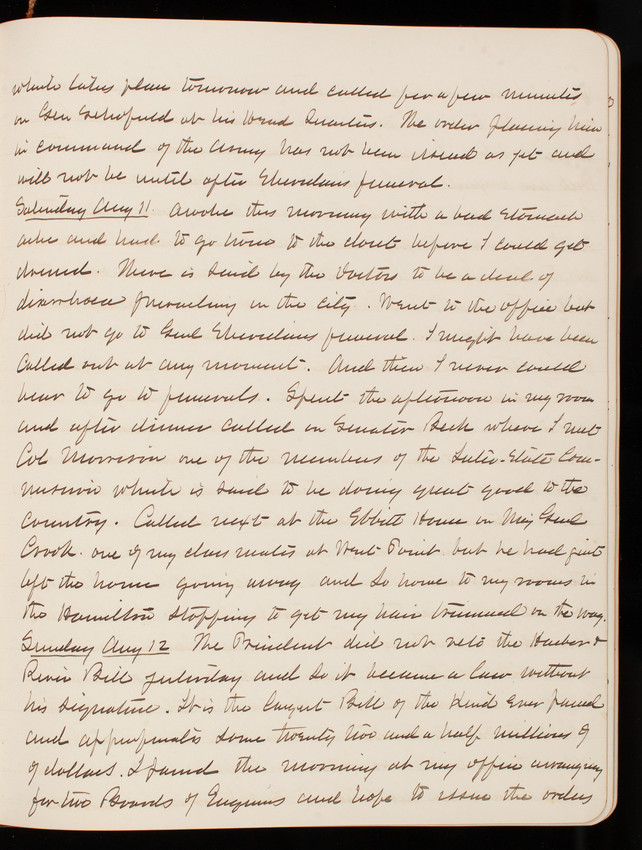 which takes place tomorrow and called for a few minutes
on Gen Schofield at his Head Quarters. The order placing him
in command of the Army has not been issued as yet and
will not be until after Sheridans funeral.
Saturday Aug 11 Awoke this morning with a bad stomach
ache and had to go to the closet before I could get
dressed. There is said by the Doctors to be a deal of
diarrhoea prevailing in the city. Went to the office but
did not go to Genl Sheridans funeral. I might have been
called out at any moment. And then I never could
bear to go to funerals. Spent the afternoon in my room
and after dinner called on Senator Beck where I met
Col Morrison one of the members of the Inter-State Com-
mission which is said to be doing great good to the
Country. Called next at the Ebbitt House on Maj Genl
Crook. one of my classmates at West Point but he had just
left the house going away and so home to my rooms in
the Hamilton stopping to get my hair trimmed on the way.
Sunday Aug 12 The President did not veto the Harbor &
River Bill yesterday and so it became a law without
his signature. It is the largest Bill of the kind ever passed
and appropriates some twenty two and a half millions of
of dollars. I passed the morning at my office arranging
for two Boards of Engineers and hope to issue the orders